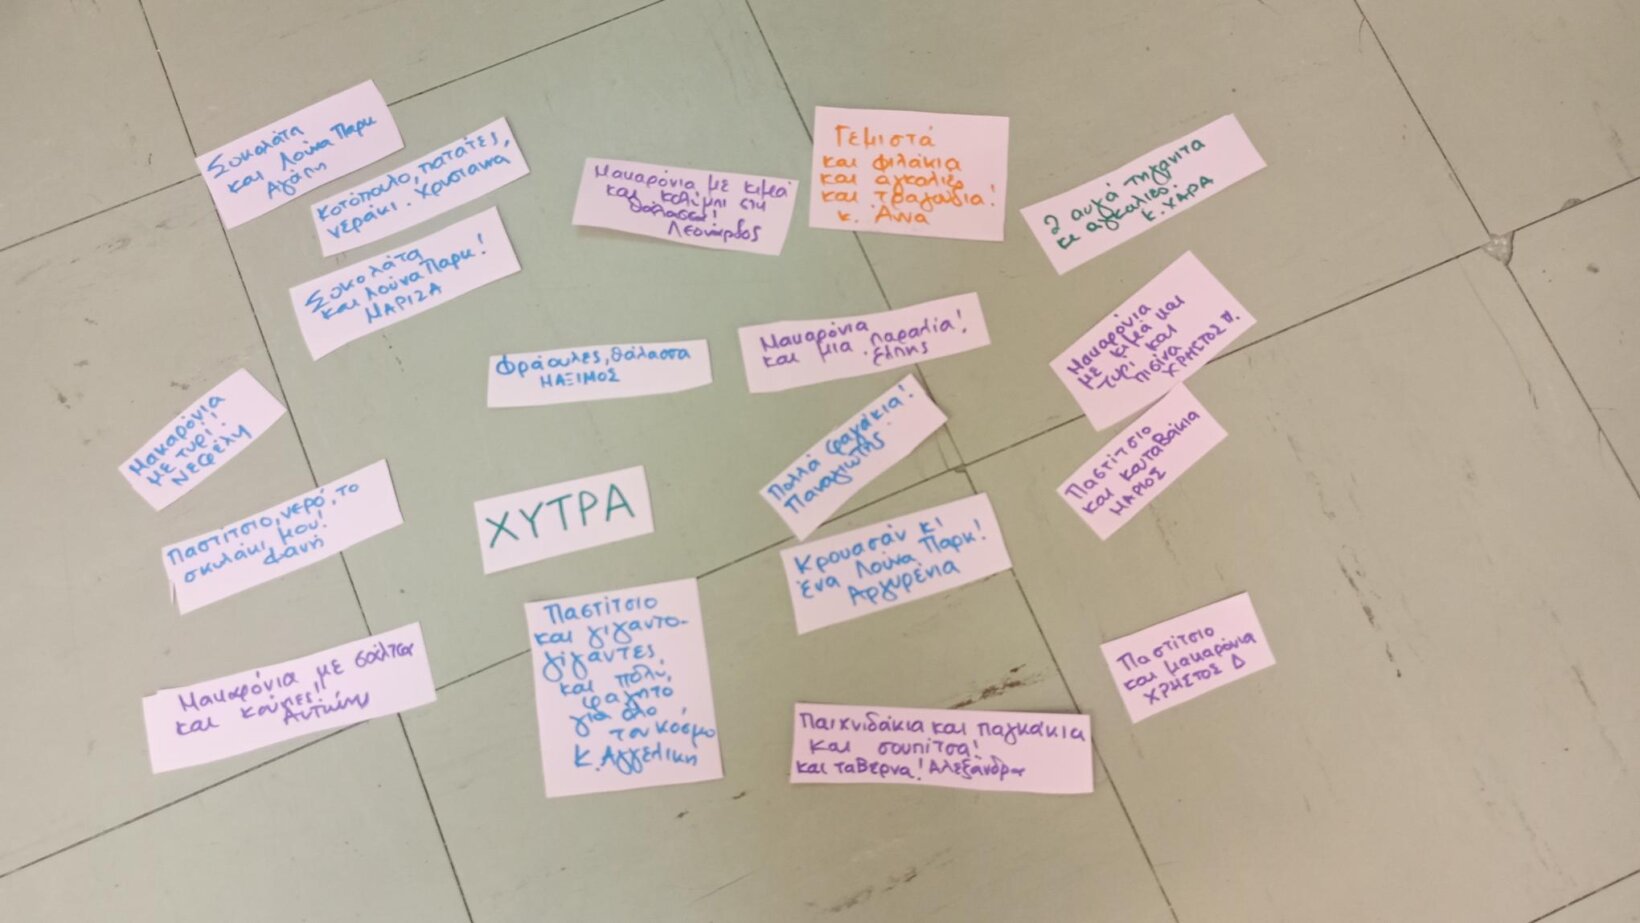 Σοκολάτα
και Λούνα Παρκ
Αγάπη
κοτόπουλο, πατάτες,
νεράκι. Χρυσιάννα
Σοκολάτα
και Λούνα Παρκ!
ΜΑΡΙΖΑ
Μακαρόνια με κιμά
και κολύμπι στη
θάλασσα!
Λεονάρδος
Γεμιστά
και φιλάκια
και αγκαλιές
και τραγούδια!
κ. Άννα
2 αυγά τηγανιτα
κι αγκαλιες.
κ. ΧΑΡΑ
Φράουλες, θάλασσα
ΜΑΞΙΜΟΣ
Μακαρόνια
και μια παραλία!
Ελπης
Μακαρόνια
με κιμά και
τυρί και
πισίνα
ΧΡΗΣΤΟΣ Π.
Μακαρόνια
με τυρί!
Νεφέλη
Πολλά φραγκάκια!
Παναγιώτης
Παστίτσιο
και κουταβάκια
ΜΑΡΙΟΣ
Παστίτσιο, νερό, το
σκυλάκι μου!
Φανή
ΧΥΤΡΑ
Κρουασάν κι
ένα Λούνα Παρκ!
Αργυρένια
Μακαρόνια με σάλτσα
και κούπες!!
Αντώνης
Παστίτσιο
και γιγαντο-
γίγαντες
και πολύ
φαγητό
για όλο
τον κόσμο
κ. Αγγελική
Παστίτσιο
και μακαρόνια
ΧΡΗΣΤΟΣ Δ
Παιχνιδάκια και παγκάκια
και σουπίτσα!
και ταβέρνα! Αλεξάνδρα